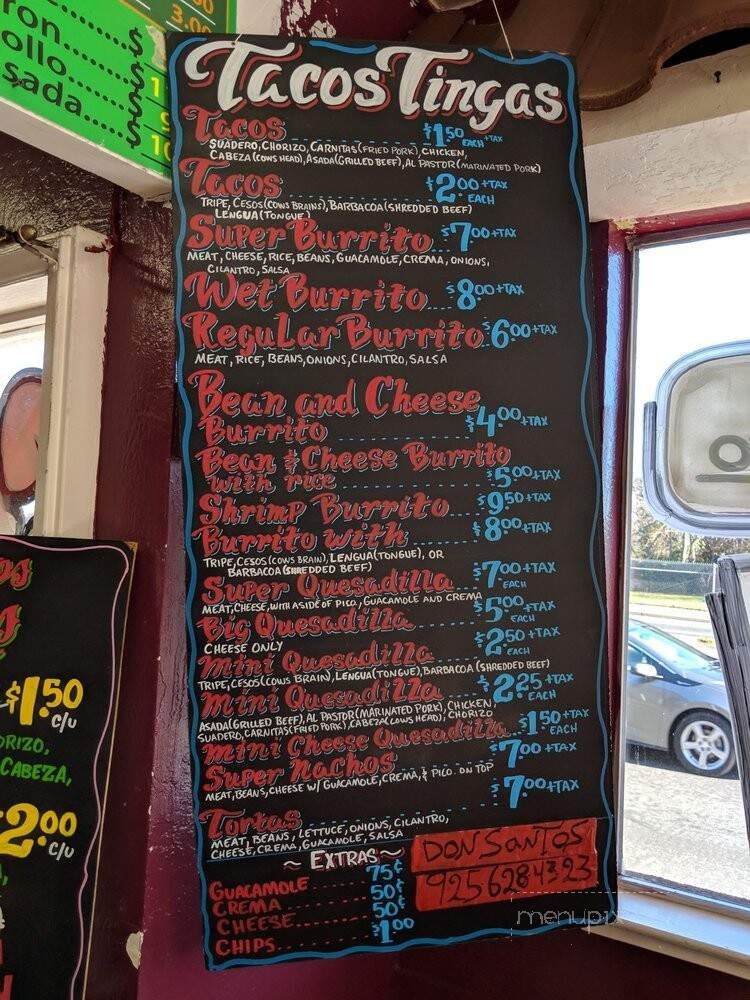 3.00
ron......$
ollo......$
sada......$
Tacos Tingas
Tacos $1.50 EACH +TAX
SUADERO, CHORIZO, CARNITAS (FRIED PORK), CHICKEN,
CABEZA (COWS HEAD), ASADA (GRILLED BEEF), AL PASTOR (MARINATED PORK)
Tacos $2.00 +TAX EACH
TRIPE, CESOS (COWS BRAINS), BARBACOA (SHREDDED BEEF)
LENGUA (TONGUE)
Super Burrito $7.00 +TAX
MEAT, CHEESE, RICE, BEANS, GUACAMOLE, CREMA, ONIONS,
CILANTRO, SALSA
Wet Burrito $8.00 +TAX
Regular Burrito $6.00 +TAX
MEAT, RICE, BEANS, ONIONS, CILANTRO, SALSA
Bean and Cheese
Burrito $4.00 +TAX
Bean & Cheese Burrito
with rice $5.00 +TAX
Shrimp Burrito $9.50 +TAX
Burrito with $8.00 +TAX
TRIPE, CESOS (COWS BRAIN), LENGUA (TONGUE), OR
BARBACOA (SHREDDED BEEF)
Super Quesadilla $7.00 +TAX EACH
MEAT, CHEESE, WITH ASIDE OF PICO, GUACAMOLE AND CREMA
Big Quesadilla $5.00 +TAX EACH
CHEESE ONLY
Mini Quesadilla $2.50 +TAX EACH
TRIPE, CESOS (COWS BRAIN), LENGUA (TONGUE), BARBACOA (SHREDDED BEEF)
Mini Quesadilla $2.25 +TAX EACH
ASADA (GRILLED BEEF), AL PASTOR (MARINATED PORK), CHICKEN,
SUADERO, CARNITAS (FRIED PORK), CABEZA (COWS HEAD), CHORIZO
Mini Cheese Quesadilla $1.50 +TAX EACH
Super Nachos $7.00 +TAX
MEAT, BEANS, CHEESE W/ GUACAMOLE, CREMA, & PICO. ON TOP
Tortas $7.00 +TAX
MEAT, BEANS, LETTUCE, ONIONS, CILANTRO,
CHEESE, CREMA, GUACAMOLE, SALSA
~ EXTRAS ~
GUACAMOLE 75¢
CREMA 50¢
CHEESE 50¢
CHIPS $1.00
DON SANTOS
925 628 4323
$1.50 c/u
ORIZO,
CABEZA,
$2.00 c/u
menupix